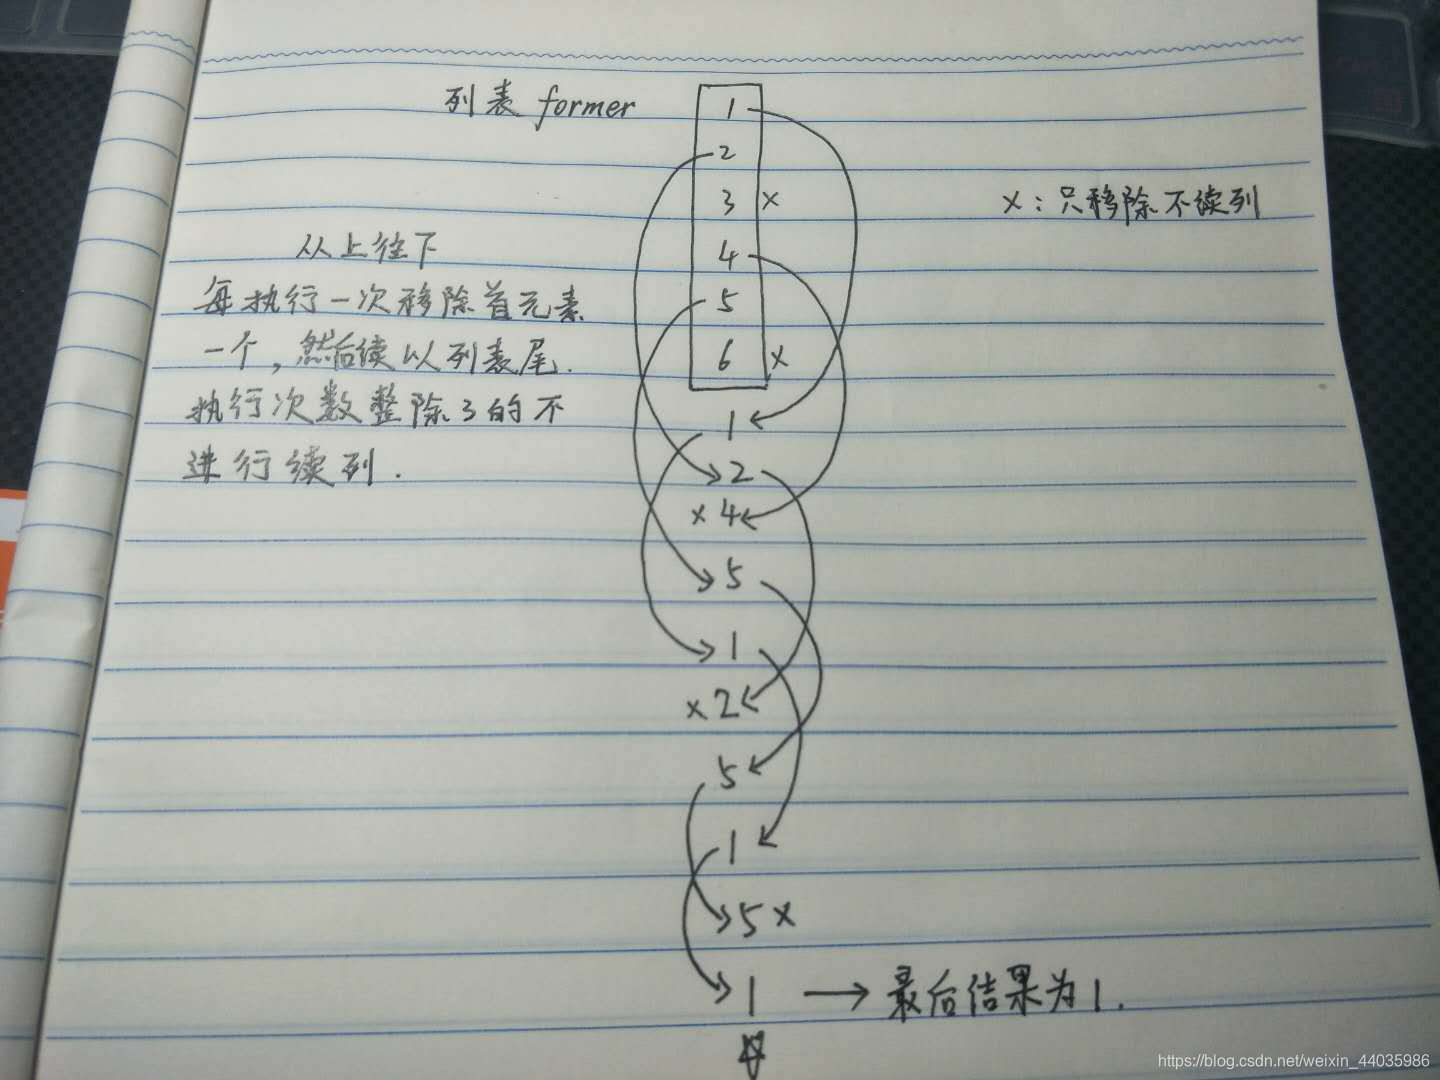 列表 former
1
2
3 x
x：只移除不续列
从上往下
4
每执行一次移除首元素
5
一个，然后续以列表尾.
6 x
执行次数整除3的不
1
进行续列.
2
x 4
5
1
x 2
5
1
5 x
1 → 最后结果为1.
https://blog.csdn.net/weixin_44035986